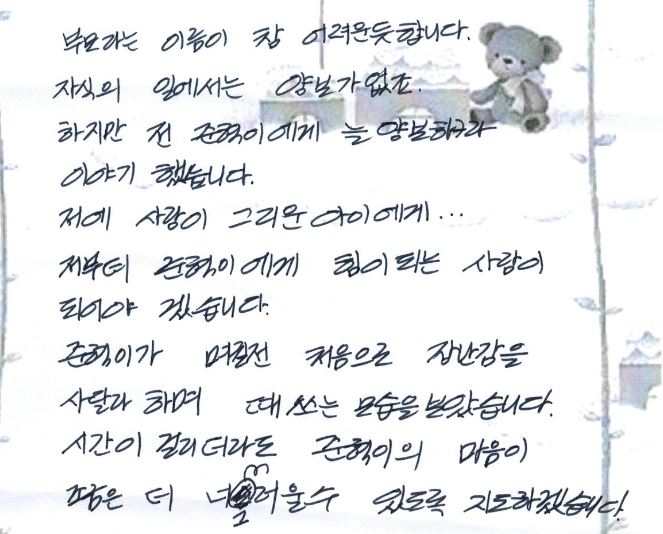 부모라는 이름이 참 어려운듯 합니다.
자식의 일에서는 양보가 없죠.
하지만 전 준혁이에게 늘 양보하라
이야기 했습니다.
저에 사랑이 그리운 아이에게...
저부터 준혁이에게 힘이 되는 사람이
되어야 겠습니다.
준혁이가 며칠전 처음으로 장난감을
사달라 하며 떼 쓰는 모습을 보았습니다.
시간이 걸리더라도 준혁이의 마음이
좀은 더 너그러울수 있도록 지도하겠습니다.